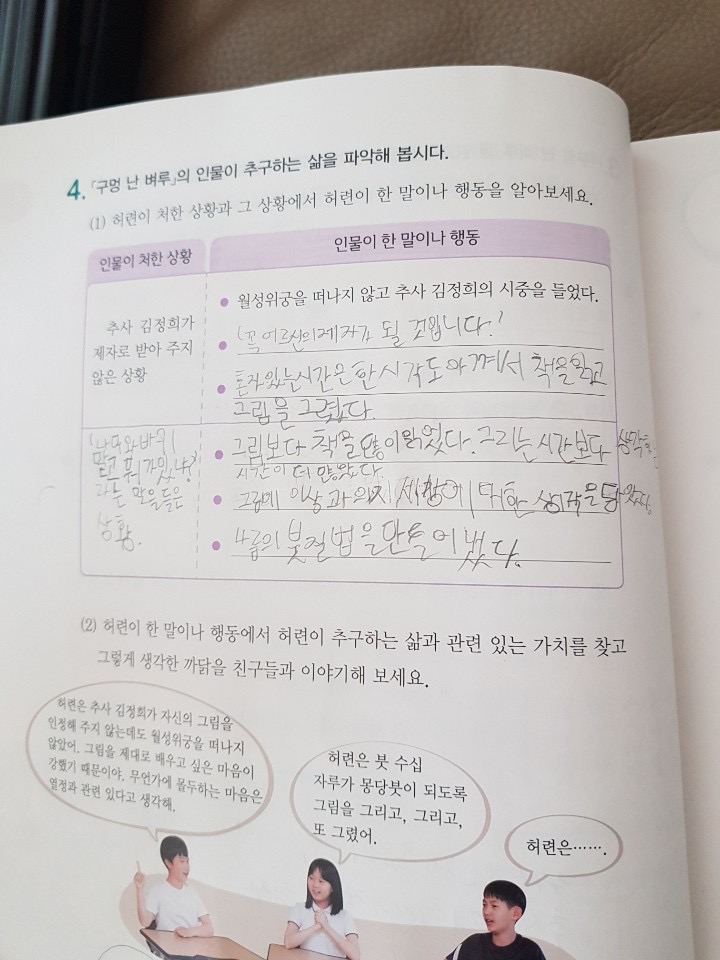 4. 「구멍 난 벼루」의 인물이 추구하는 삶을 파악해 봅시다.
(1) 허련이 처한 상황과 그 상황에서 허련이 한 말이나 행동을 알아보세요.
인물이 처한 상황
인물이 한 말이나 행동
추사 김정희가
제자로 받아 주지
않은 상황
• 월성위궁을 떠나지 않고 추사 김정희의 시중을 들었다.
• '꼭 어르신의 제자가 될 것입니다.'
• 혼자 있는 시간은 한 시각도 아껴서 책을 읽고
그림을 그렸다.
말고 뭐가 있냐?'
라는 말을 들은
상황.
• 그림보다 책을 많이 읽었다. 그리는 시간보다 생각하는
시간이 더 많았다.
• 그림에 이상과 의지 세상에 대한 생각을 담았다.
• 나름의 붓질법을 만들어 냈다.
(2) 허련이 한 말이나 행동에서 허련이 추구하는 삶과 관련 있는 가치를 찾고
그렇게 생각한 까닭을 친구들과 이야기해 보세요.
허련은 추사 김정희가 자신의 그림을
인정해 주지 않는데도 월성위궁을 떠나지
않았어. 그림을 제대로 배우고 싶은 마음이
강했기 때문이야. 무언가에 몰두하는 마음은
열정과 관련 있다고 생각해.
허련은 붓 수십
자루가 몽당붓이 되도록
그림을 그리고, 그리고,
또 그렸어.
허련은…….